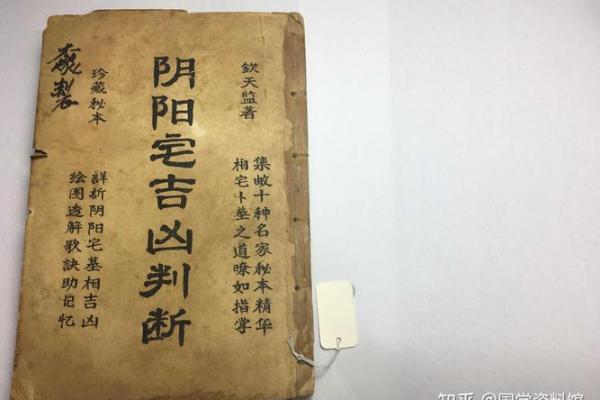 欽天监著
集数十种名家秘本精华
相宅卜墓之道暸如指掌
阴阳宅吉凶判断
珍藏秘本
詳析阴阳宅墓相吉凶
绘图透解歌訣助记忆
製
知乎 @国学资料馆